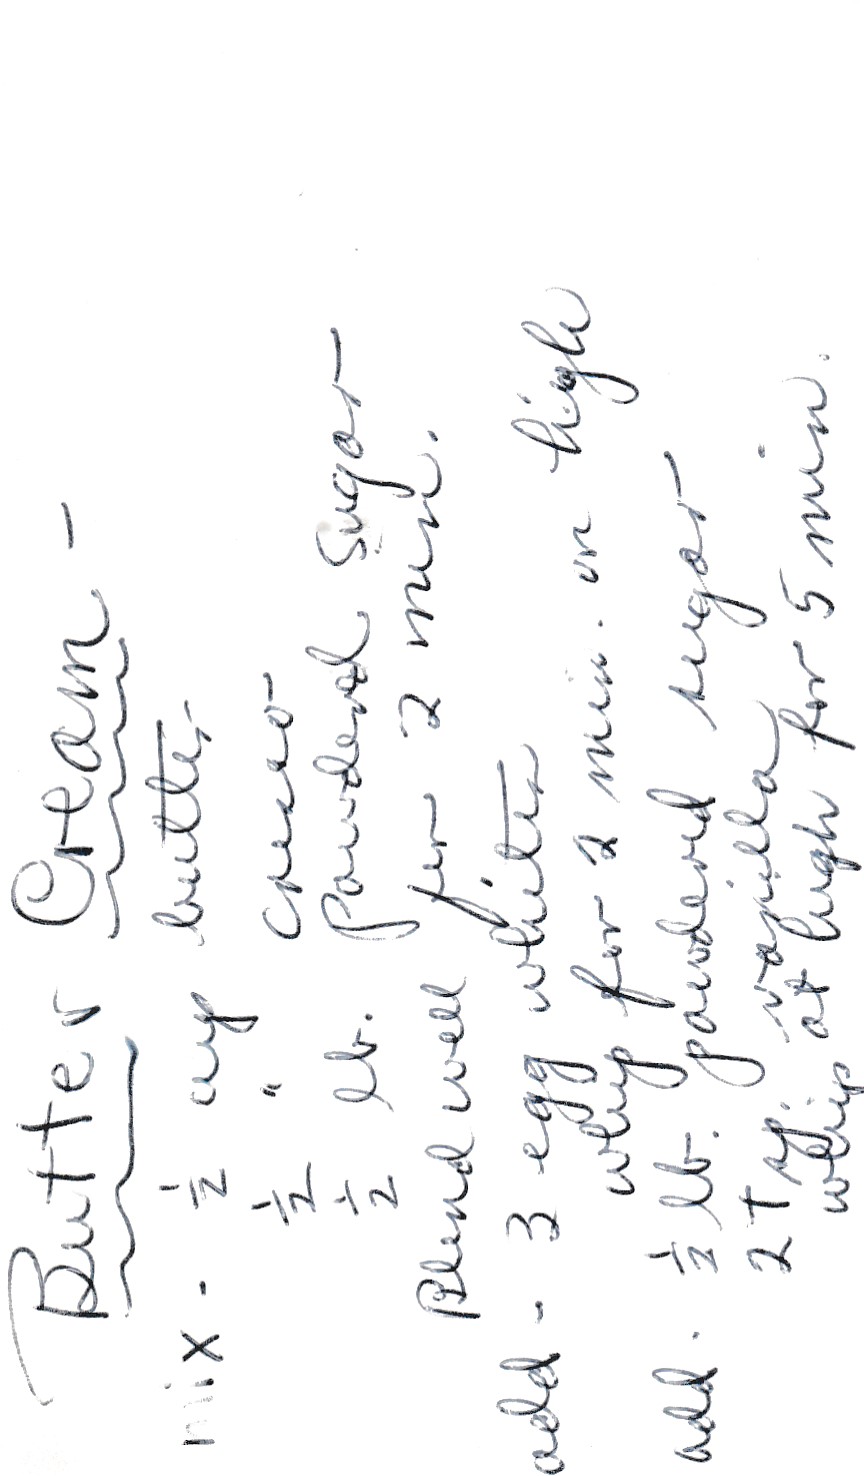 Butter Cream -
mix - 1/2 cup butter
1/2 " crisco
1/2 lb. powdered sugar
Blend well for 2 min.
add - 3 egg whites
whip for 2 min. on high
add - 1/2 lb. powdered sugar
2 Tsp. vanilla
whip at high for 5 min.